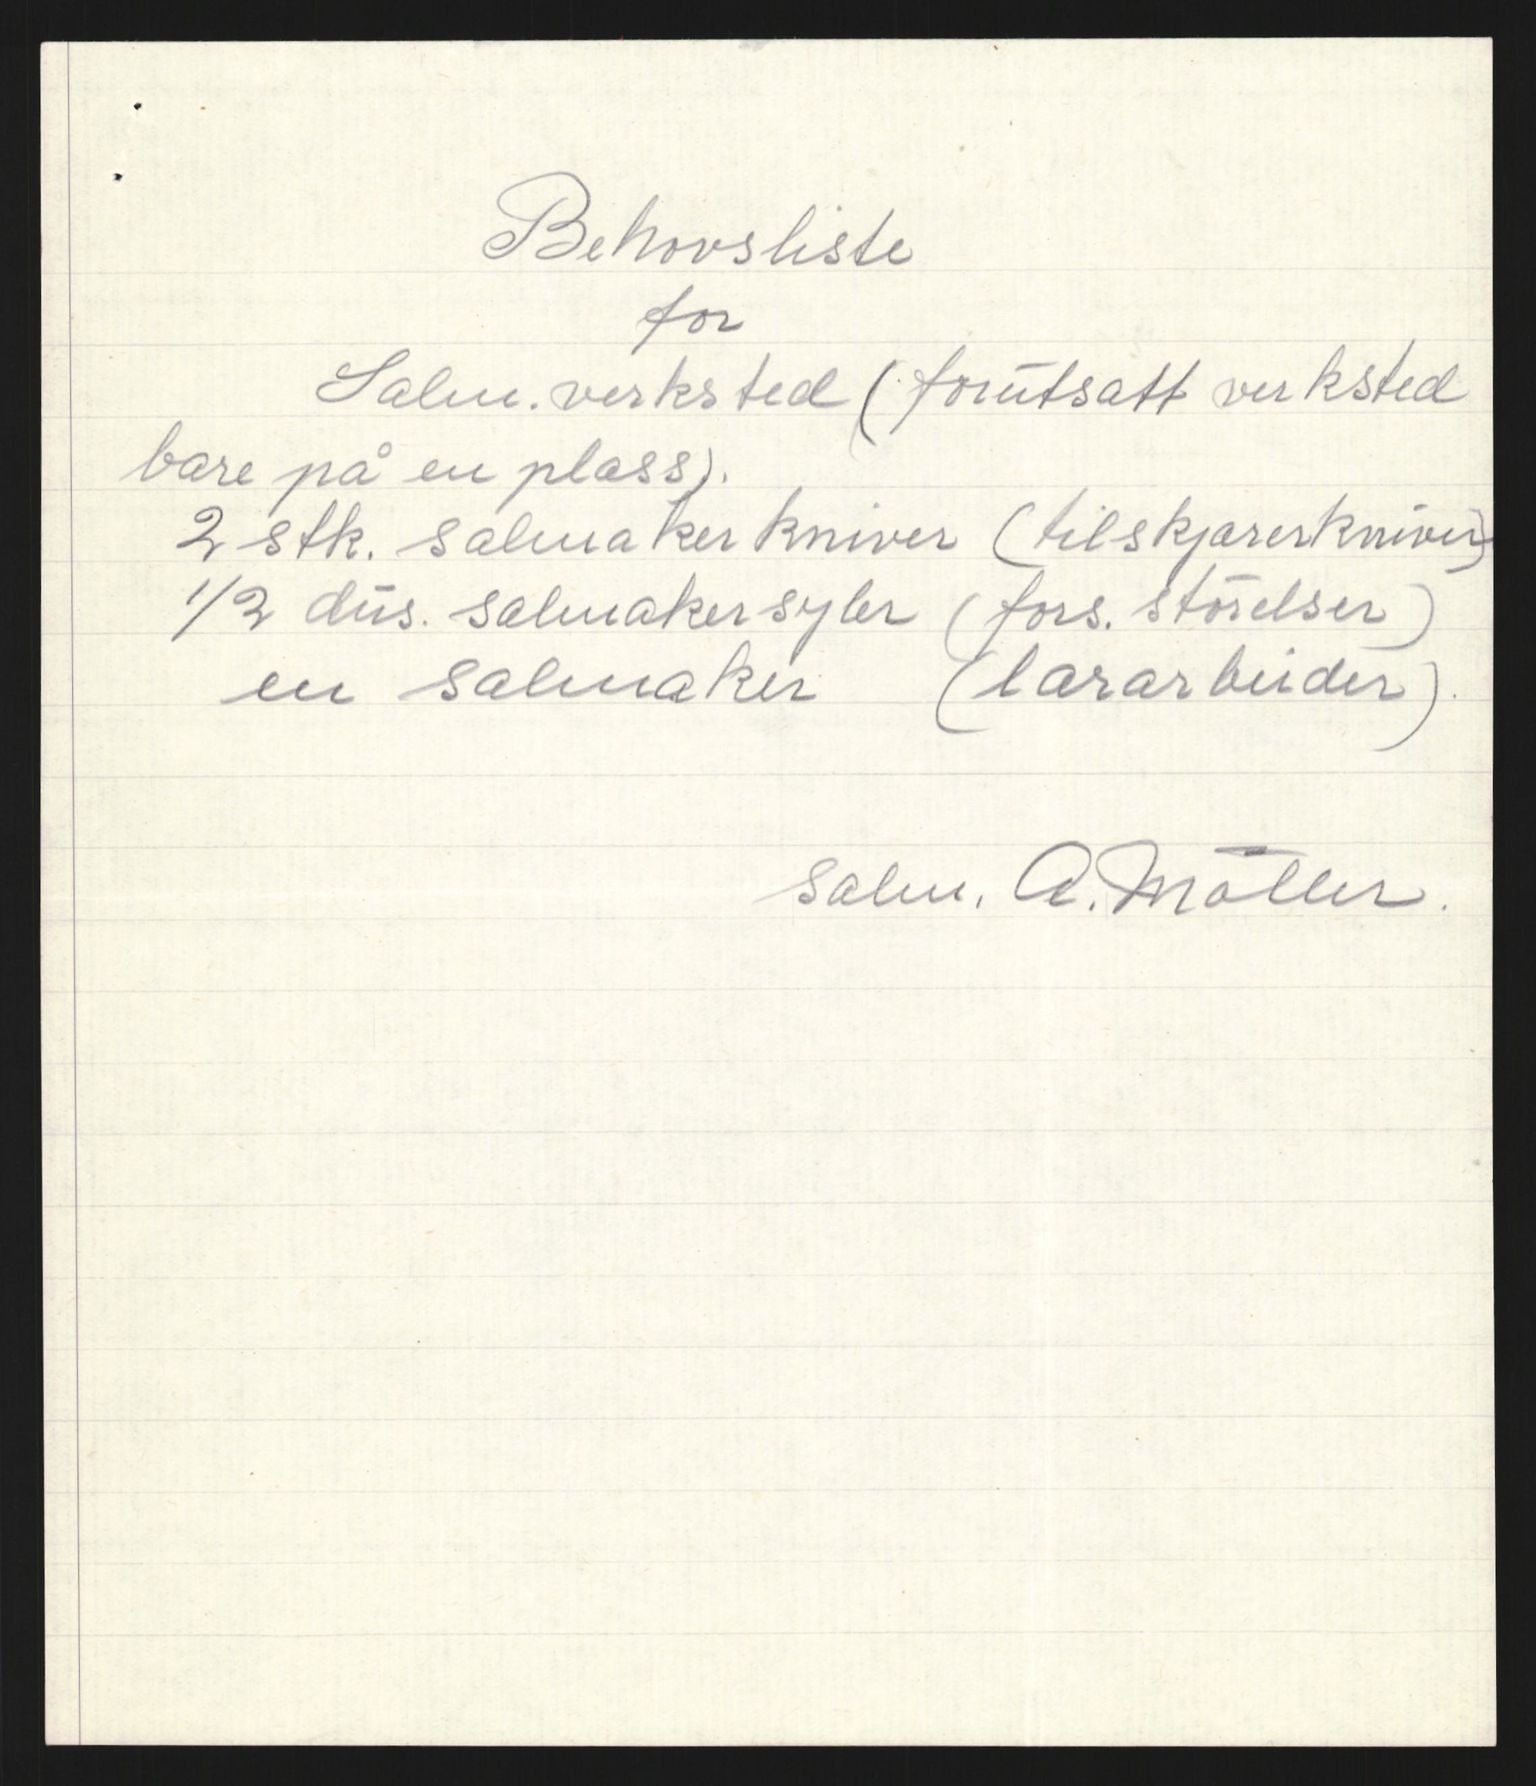 Behovsliste
for
Salm. verksted (forutsatt verksted
bare på en plass).
2 stk. salmakerkniver (tilskjarerkniver)
1/2 dus. salmakersyler (fors. störelser)
en salmaker (lararbeider).
salm. A. Möller.